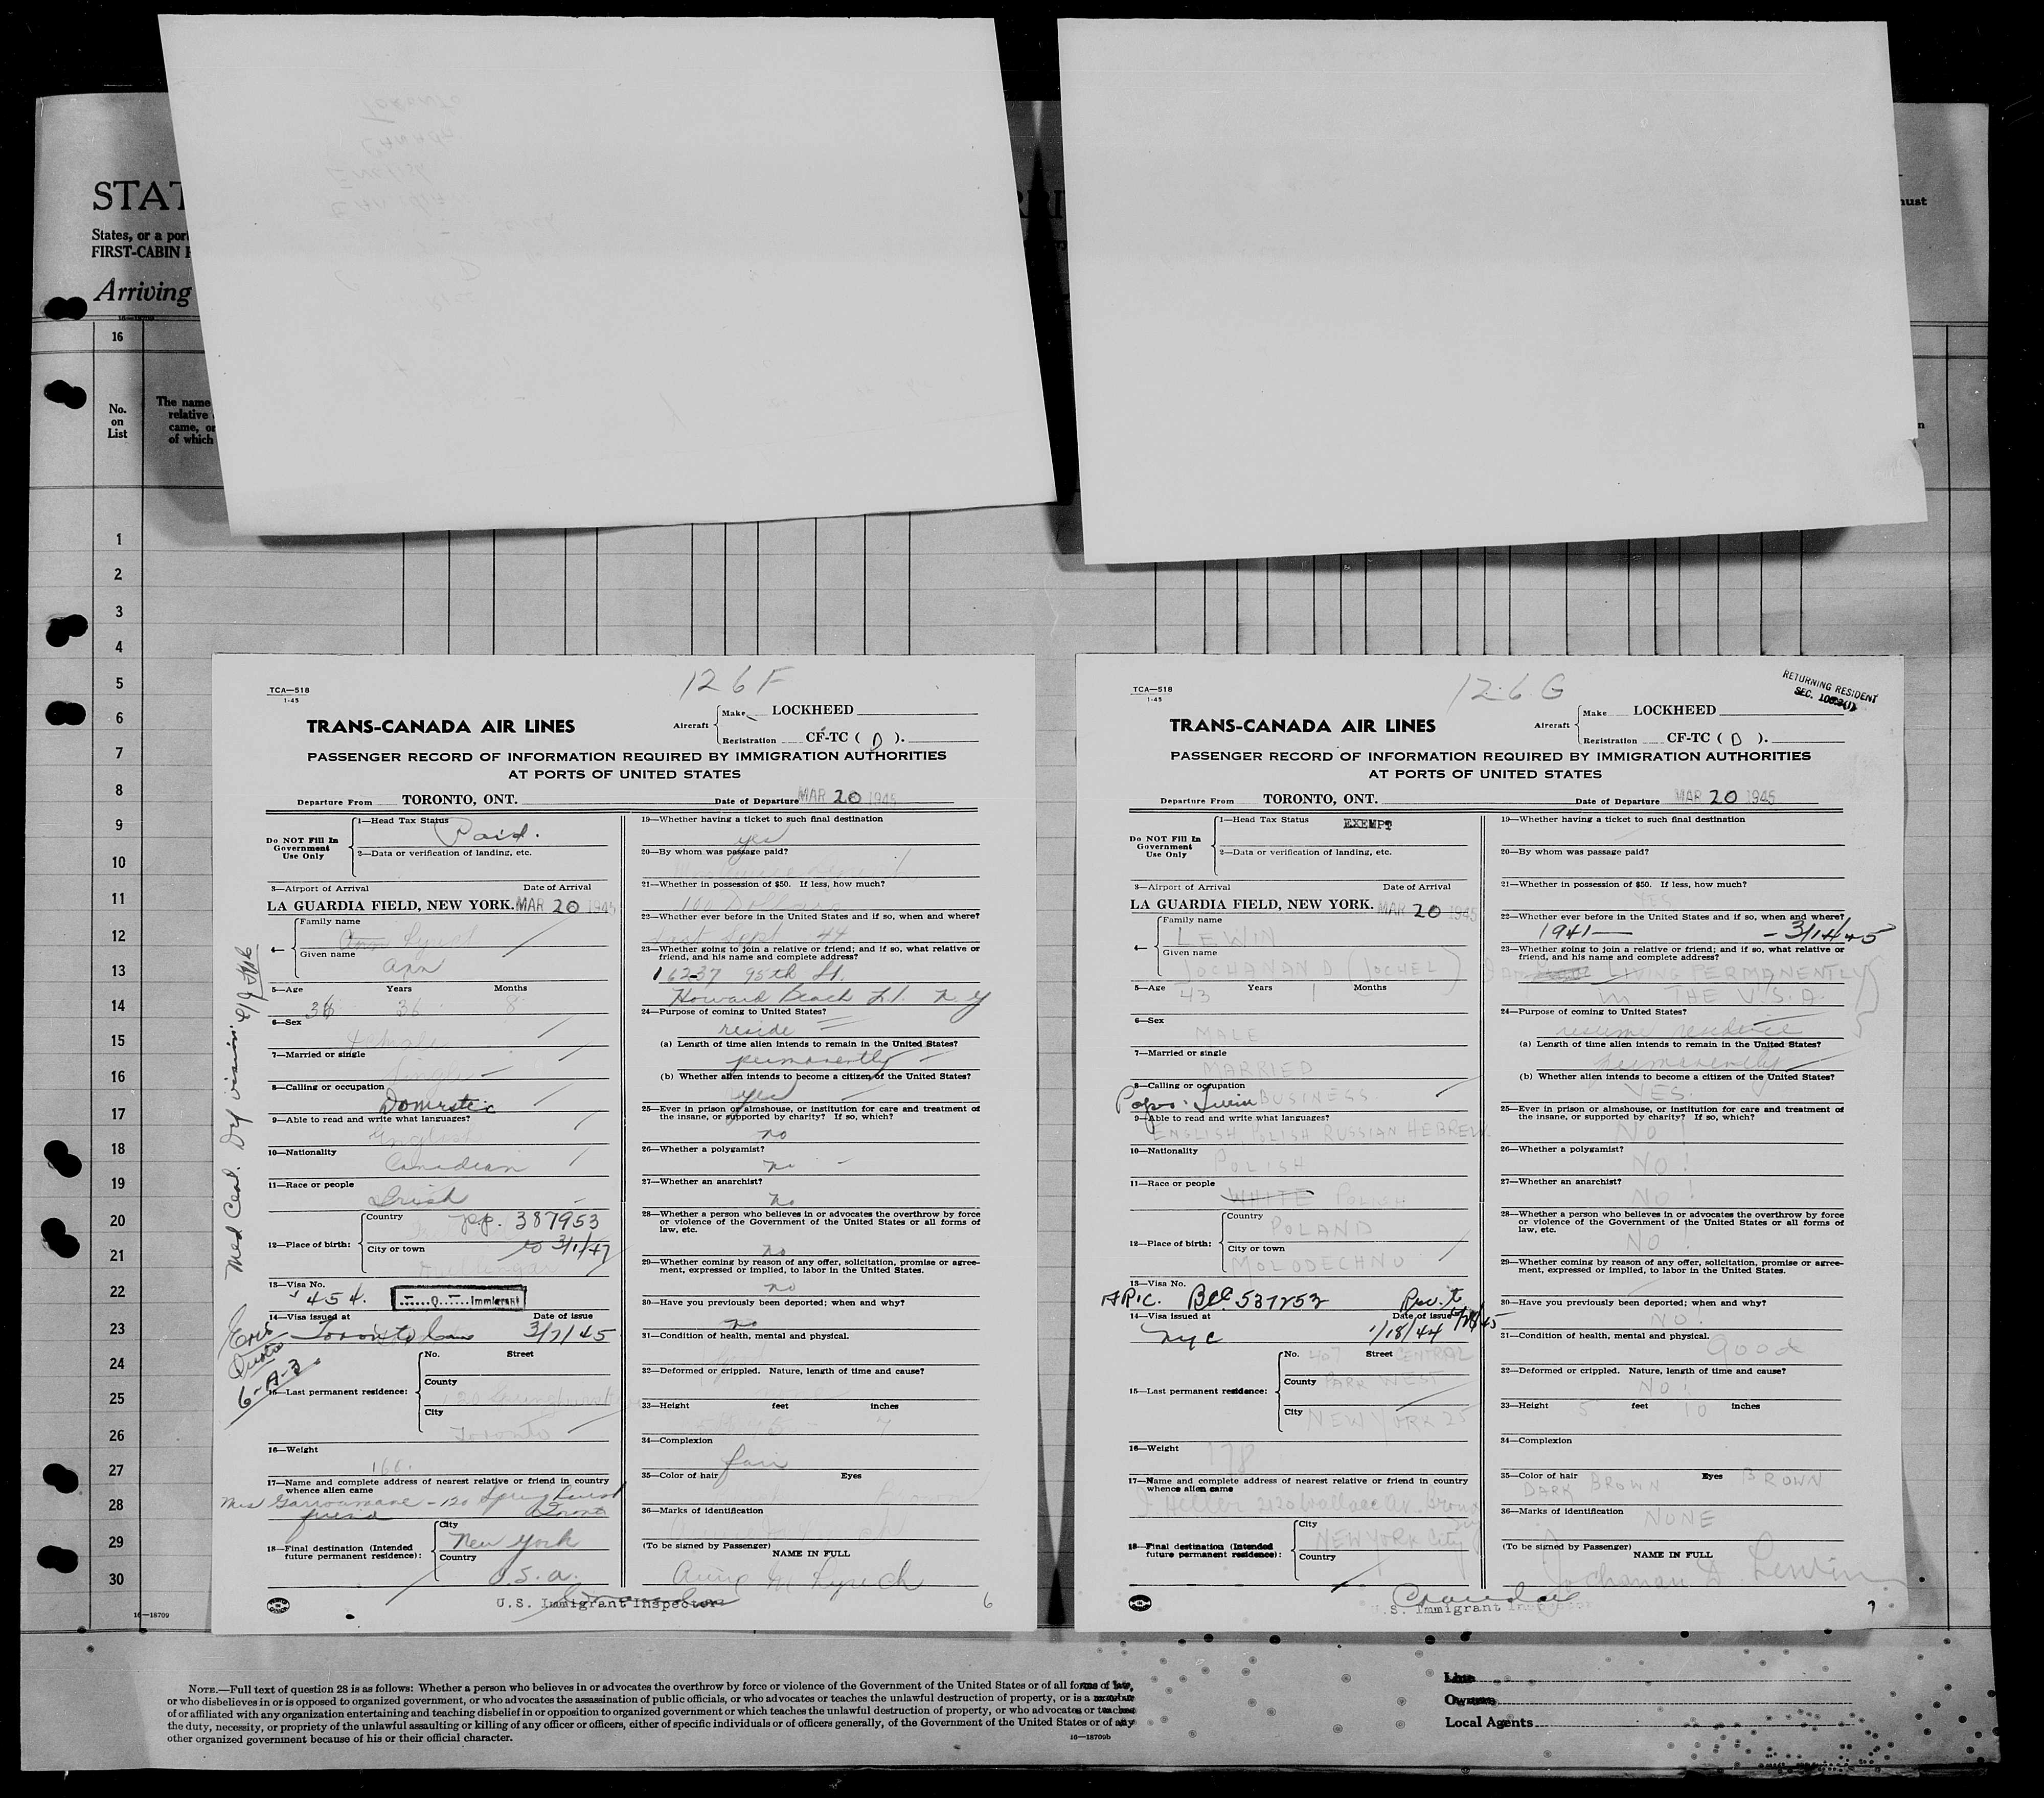 STAT
States, or a port
FIRST-CABIN P
Arriving
RRI
must
16—18709
16
No.
on
List
The name
relative
came, or
of which
n
1
2
3
4
5
6
7
8
9
10
11
12
13
14
15
16
17
18
19
20
21
22
23
24
25
26
27
28
29
30
16—18709
126F
TCA—518
1-45
TRANS-CANADA AIR LINES
Aircraft
Make LOCKHEED
Registration CF-TC ( D ).
PASSENGER RECORD OF INFORMATION REQUIRED BY IMMIGRATION AUTHORITIES
AT PORTS OF UNITED STATES
Departure From TORONTO, ONT. Date of Departure MAR 20 1945
Do NOT Fill In
Government
Use Only
1—Head Tax Status Paid.
2—Data or verification of landing, etc.
3—Airport of Arrival Date of Arrival
LA GUARDIA FIELD, NEW YORK. MAR 20 1945
4— Family name
Lynch
Given name
Ann
5—Age Years Months
36 36 8
6—Sex
Female
7—Married or single
Single
8—Calling or occupation
Domestic
9—Able to read and write what languages?
English
10—Nationality
Canadian
11—Race or people
Irish
12—Place of birth:
Country
pp. 387953
to 3/1/47
City or town
13—Visa No.
454. Immigrant
14—Visa issued at Date of issue
Toronto Can 3/7/45
15—Last permanent residence:
No. Street
County
120 Springhurst
City
Toronto
16—Weight
166.
17—Name and complete address of nearest relative or friend in country
whence alien came
- 120 Springhurst
friend Toronto
18—Final destination (Intended
future permanent residence):
City
New York
Country
U.S.A.
Med Cert. Def vision.
Quota
6-A-3
19—Whether having a ticket to such final destination
yes
20—By whom was passage paid?
21—Whether in possession of $50. If less, how much?
100 Dollars
22—Whether ever before in the United States and if so, when and where?
last Sept 44
23—Whether going to join a relative or friend; and if so, what relative or
friend, and his name and complete address?
16237 95th St.
Howard Beach L.I. N.Y
24—Purpose of coming to United States?
reside
(a) Length of time alien intends to remain in the United States?
permanently
(b) Whether alien intends to become a citizen of the United States?
yes
25—Ever in prison or almshouse, or institution for care and treatment of
the insane, or supported by charity? If so, which?
no
26—Whether a polygamist?
no
27—Whether an anarchist?
no
28—Whether a person who believes in or advocates the overthrow by force
or violence of the Government of the United States or all forms of
law, etc.
no
29—Whether coming by reason of any offer, solicitation, promise or agree-
ment, expressed or implied, to labor in the United States.
no
30—Have you previously been deported; when and why?
no
31—Condition of health, mental and physical.
32—Deformed or crippled. Nature, length of time and cause?
33—Height feet inches
5 7
34—Complexion
fair
35—Color of hair Eyes
Brown
36—Marks of identification
(To be signed by Passenger)
NAME IN FULL
Anne M Lynch
U.S. Immigrant Inspector
6
126G
RETURNING RESIDENT
TCA—518
1-45
TRANS-CANADA AIR LINES
Aircraft
Make LOCKHEED
Registration CF-TC ( D ).
PASSENGER RECORD OF INFORMATION REQUIRED BY IMMIGRATION AUTHORITIES
AT PORTS OF UNITED STATES
Departure From TORONTO, ONT. Date of Departure MAR 20 1945
Do NOT Fill In
Government
Use Only
1—Head Tax Status EXEMPT
2—Data or verification of landing, etc.
3—Airport of Arrival Date of Arrival
LA GUARDIA FIELD, NEW YORK. MAR 20 1945
4— Family name
LEWIN
Given name
JOCHANAN D (JOCHEL)
5—Age 43 Years 1 Months
6—Sex
MALE
7—Married or single
MARRIED
8—Calling or occupation
BUSINESS
9—Able to read and write what languages?
ENGLISH, POLISH RUSSIAN HEBREW
10—Nationality
POLISH
11—Race or people
WHITE POLISH
12—Place of birth:
Country
POLAND
City or town
MOLODECHNO
13—Visa No.
537253
14—Visa issued at Date of issue
NYC 1/18/44
15—Last permanent residence:
No. 407 Street CENTRAL
County PARK WEST
City NEW YORK 25
16—Weight
178
17—Name and complete address of nearest relative or friend in country
whence alien came
J Heller 2120 Wallace Av. Bronx
18—Final destination (Intended
future permanent residence):
City
NEW YORK City
Country
19—Whether having a ticket to such final destination
20—By whom was passage paid?
21—Whether in possession of $50. If less, how much?
YES
22—Whether ever before in the United States and if so, when and where?
1941— - 3/14/45
23—Whether going to join a relative or friend; and if so, what relative or
friend, and his name and complete address?
I am LIVING PERMANENTLY
in THE U.S.A.
24—Purpose of coming to United States?
resume residence
(a) Length of time alien intends to remain in the United States?
permanently
(b) Whether alien intends to become a citizen of the United States?
YES.
25—Ever in prison or almshouse, or institution for care and treatment of
the insane, or supported by charity? If so, which?
NO!
26—Whether a polygamist?
NO!
27—Whether an anarchist?
NO!
28—Whether a person who believes in or advocates the overthrow by force
or violence of the Government of the United States or all forms of
law, etc.
NO!
29—Whether coming by reason of any offer, solicitation, promise or agree-
ment, expressed or implied, to labor in the United States.
30—Have you previously been deported; when and why?
NO!
31—Condition of health, mental and physical.
Good
32—Deformed or crippled. Nature, length of time and cause?
NO!
33—Height 5 feet 10 inches
34—Complexion
35—Color of hair DARK BROWN Eyes BROWN
36—Marks of identification
NONE
(To be signed by Passenger)
NAME IN FULL
Jochanan D. Lewin
U.S. Immigrant Inspector
7
NOTE.—Full text of question 28 is as follows: Whether a person who believes in or advocates the overthrow by force or violence of the Government of the United States or of all forms of law,
or who disbelieves in or is opposed to organized government, or who advocates the assassination of public officials, or who advocates or teaches the unlawful destruction of property, or is a member
of or affiliated with any organization entertaining and teaching disbelief in or opposition to organized government or which teaches the unlawful destruction of property, or who advocates or teaches
the duty, necessity, or propriety of the unlawful assaulting or killing of any officer or officers, either of specific individuals or of officers generally, of the Government of the United States or of any
other organized government because of his or their official character.
16—18709b
Line
Owners
Local Agents